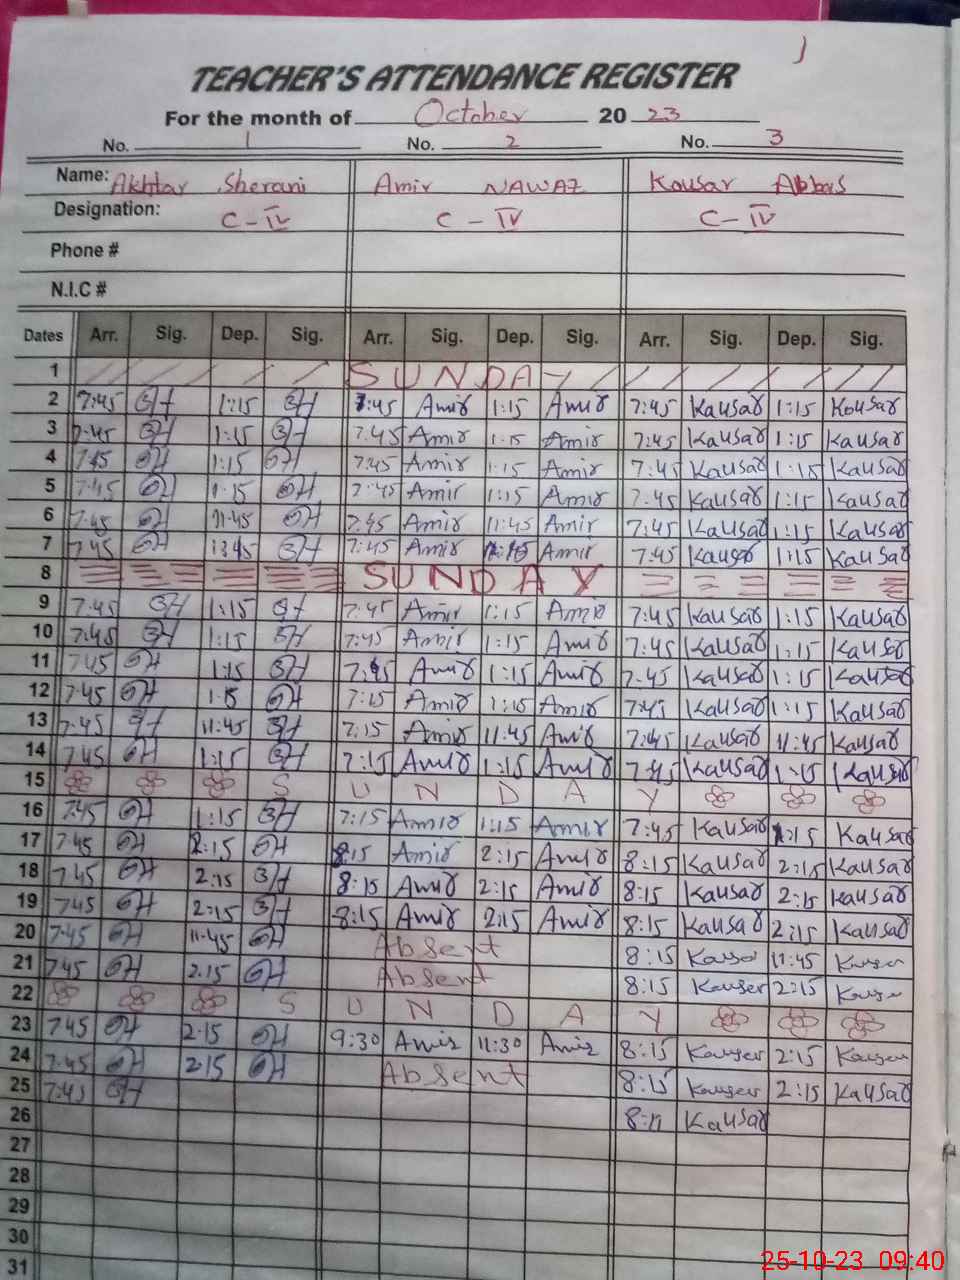 TEACHER'S ATTENDANCE REGISTER
For the month of October 20 23
No. 1 No. 2 No. 3
Name: Akhtar Sherani Amir NAWAZ Kousar Abbas
Designation: C-IV C-IV C-IV
Phone #
N.I.C #
Dates Arr. Sig. Dep. Sig. Arr. Sig. Dep. Sig. Arr. Sig. Dep. Sig.
1 SUNDAY
2 7:45 1:15 7:45 Amir 1:15 Amir 7:45 Kausar 1:15 Kousar
3 7:45 1:15 7:45 Amir 1:15 Amir 7:45 Kausar 1:15 Kausar
4 7:45 1:15 7:45 Amir 1:15 Amir 7:45 Kausar 1:15 Kausar
5 7:45 1:15 7:45 Amir 1:15 Amir 7:45 Kausar 1:15 Kausar
6 7:45 11:45 7:45 Amir 11:45 Amir 7:45 Kausar 1:15 Kausar
7 7:45 7:45 Amir Amir 7:45 Kausar 1:15 Kausar
8 SUNDAY
9 7:45 1:15 7:45 Amir 1:15 Amir 7:45 Kausar 1:15 Kausar
10 7:45 1:15 7:45 Amir 1:15 Amir 7:45 Kausar 1:15 Kausar
11 7:45 1:15 7:45 Amir 1:15 Amir 7:45 Kausar 1:15 Kausar
12 7:45 1:15 7:15 Amir 1:15 Amir 7:45 Kausar 1:15 Kausar
13 7:45 11:45 7:15 Amir 11:45 Amir 7:45 Kausar 11:45 Kausar
14 7:45 1:15 7:15 Amir 1:15 Amir 7:45 Kausar 1:15 Kausar
15 SUNDAY
16 7:45 1:15 7:15 Amir 1:15 Amir 7:45 Kausar 1:15 Kausar
17 7:45 2:15 8:15 Amir 2:15 Amir 8:15 Kausar 2:15 Kausar
18 7:45 2:15 8:15 Amir 2:15 Amir 8:15 Kausar 2:15 Kausar
19 7:45 2:15 8:15 Amir 2:15 Amir 8:15 Kausar 2:15 Kausar
20 7:45 11:45 Absent 8:15 Kauser 11:45 Kauser
21 7:45 2:15 Absent 8:15 Kauser 2:15 Kauser
22 SUNDAY
23 7:45 2:15 9:30 Amir 11:30 Amir 8:15 Kauser 2:15 Kauser
24 7:45 2:15 Absent 8:15 Kauser 2:15 Kausar
25 7:45 8:11 Kausar
26
27
28
29
30
31
25-10-23 09:40